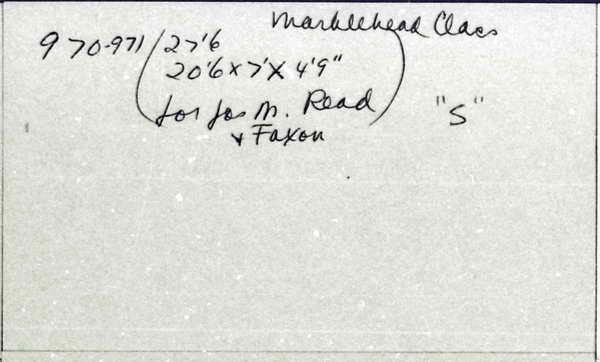 Marblehead Class
970-971 (27'6
20'6 x 7' x 4'9"
for Jos M. Read)
"S"
+ Faxon